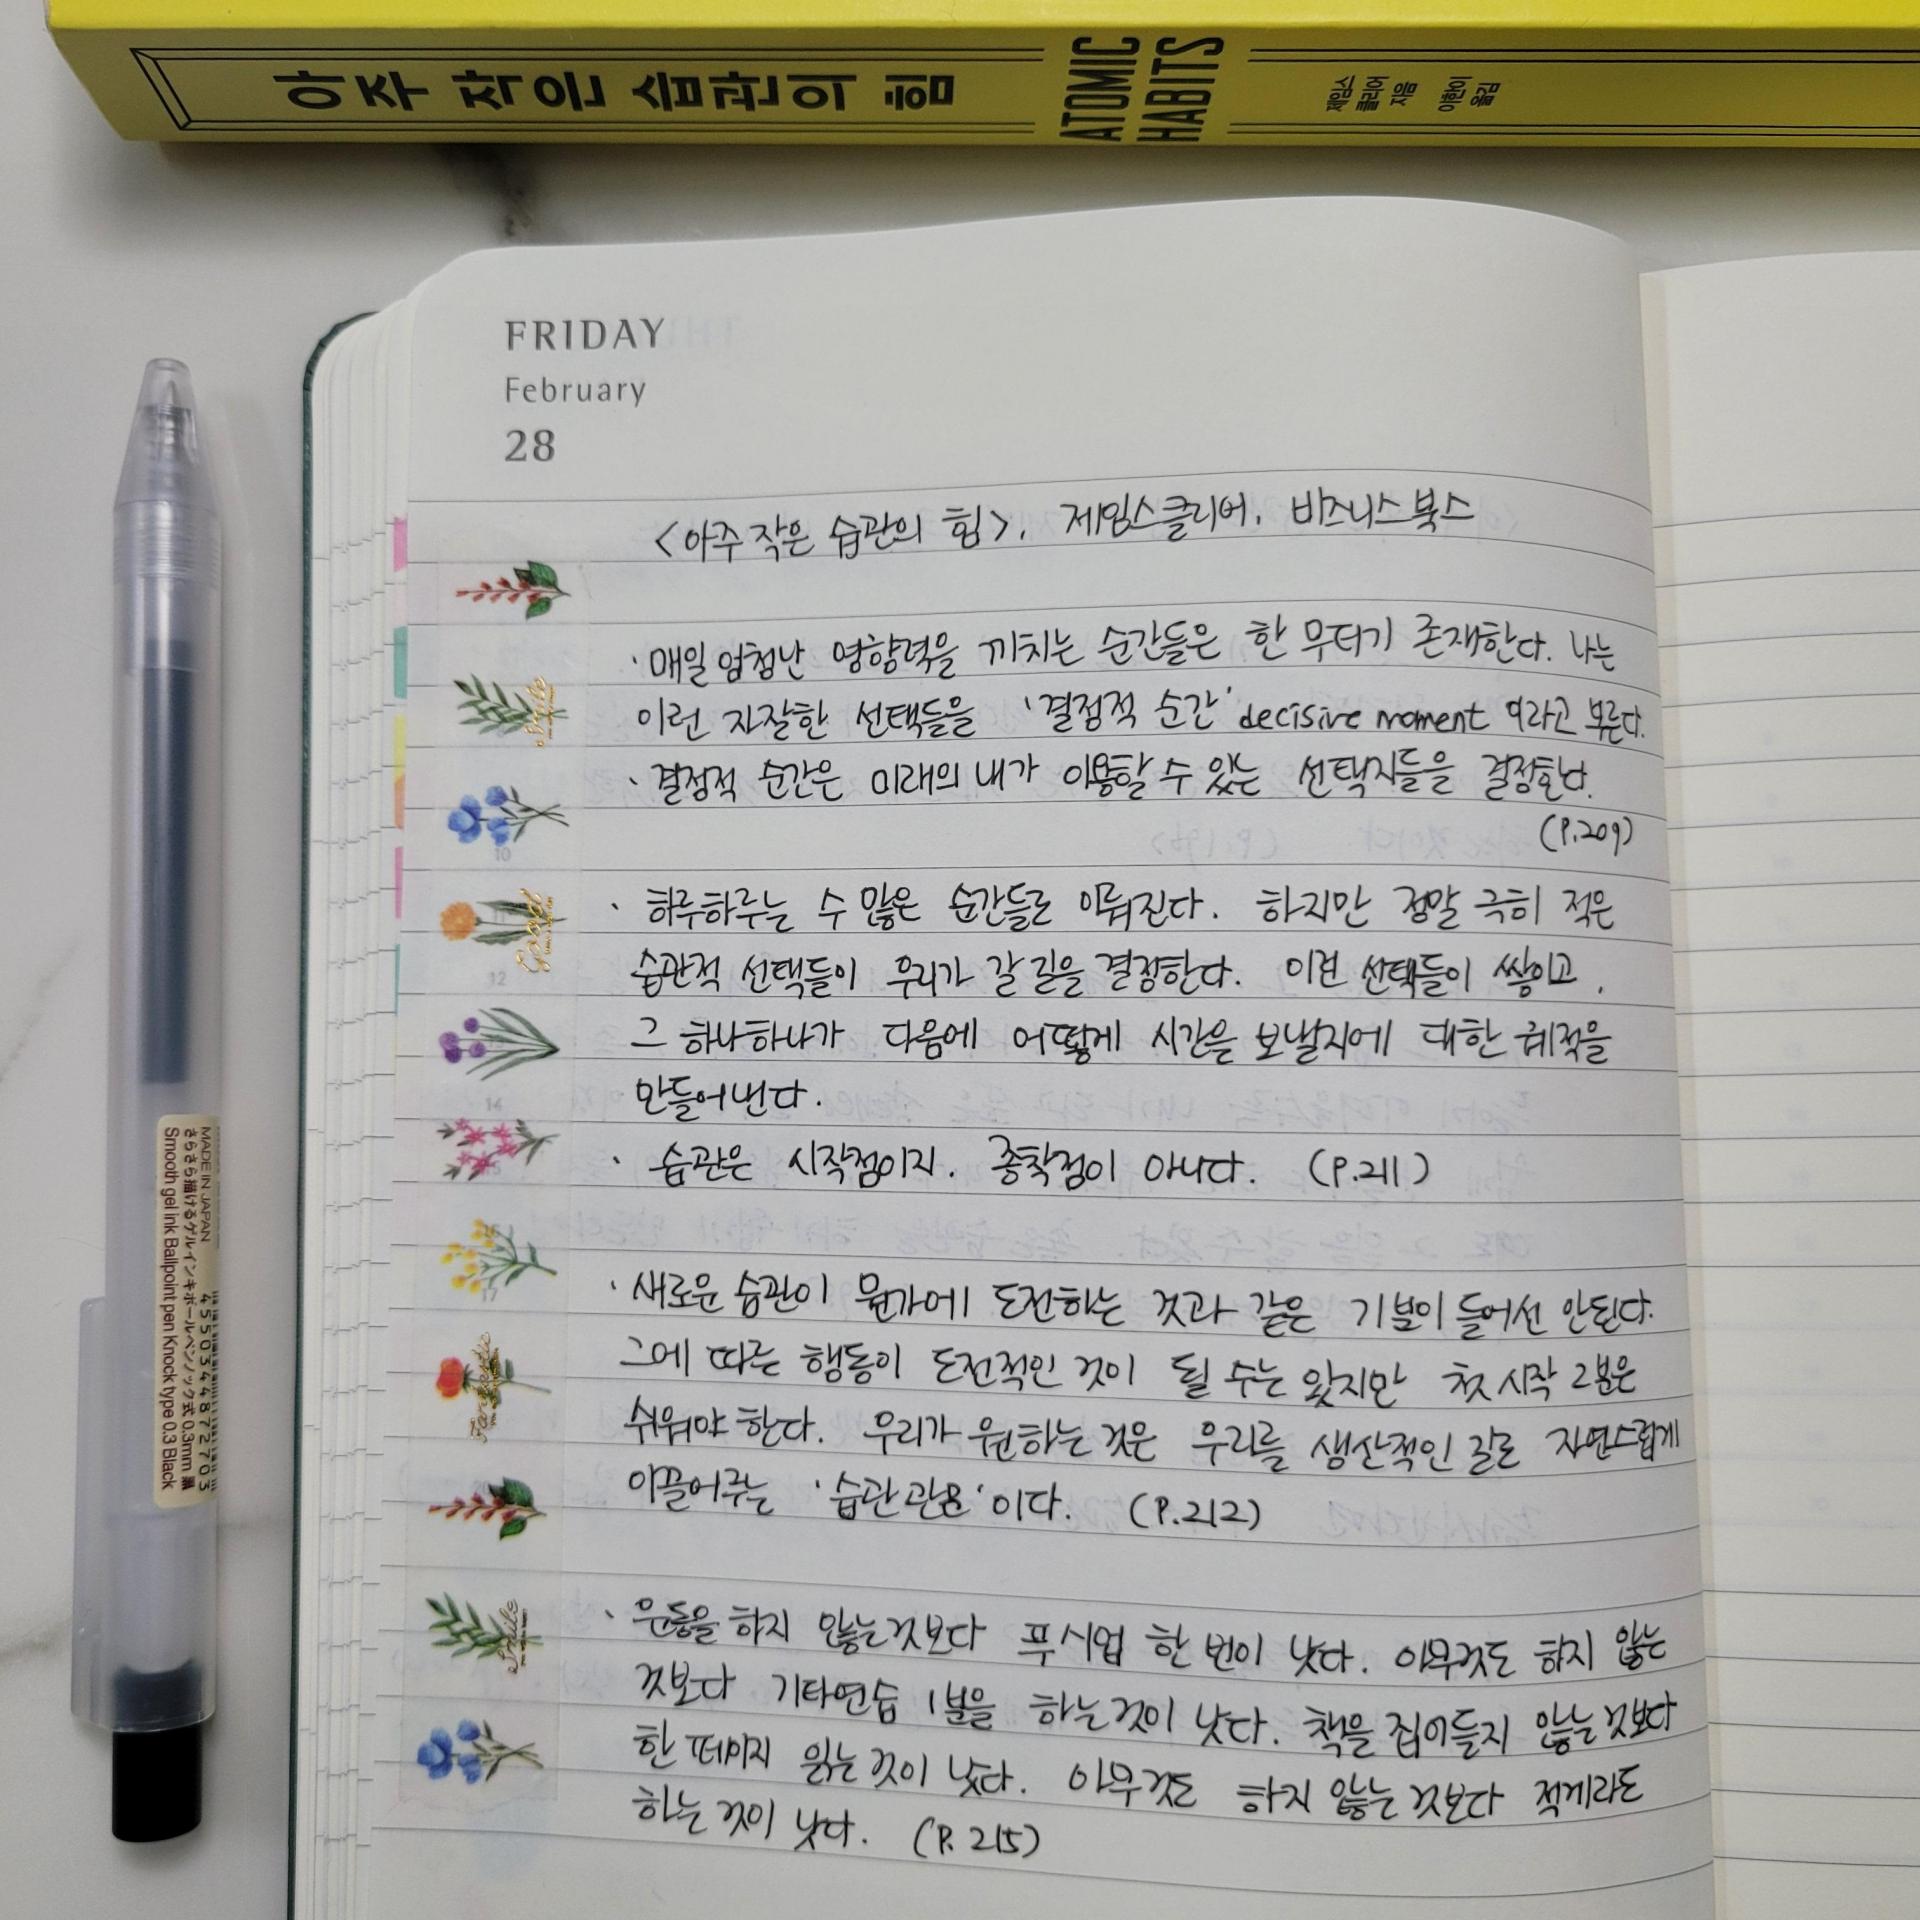 아주 작은 습관의 힘
ATOMIC
HABITS
제임스
클리어
지음
이한이
옮김
FRIDAY
February
28
<아주 작은 습관의 힘>. 제임스클리어. 비즈니스북스
· 매일 엄청난 영향력을 끼치는 순간들은 한 무더기 존재한다. 나는
이런 자잘한 선택들을 '결정적 순간' decisive moment 이라고 부른다.
· 결정적 순간은 미래의 내가 이용할 수 있는 선택지들을 결정한다.
(P.209)
· 하루하루는 수 많은 순간들로 이뤄진다. 하지만 정말 극히 적은
습관적 선택들이 우리가 갈 길을 결정한다. 이런 선택들이 쌓이고,
그 하나하나가 다음에 어떻게 시간을 보낼지에 대한 궤적을
만들어낸다.
· 습관은 시작점이지. 종착점이 아니다. (P.211)
· 새로운 습관이 뭔가에 도전하는 것과 같은 기분이 들어선 안된다.
그에 따른 행동이 도전적인 것이 될 수는 있지만 첫 시작 2분은
쉬워야 한다. 우리가 원하는 것은 우리를 생산적인 길로 자연스럽게
이끌어주는 '습관 관문'이다. (P.212)
· 운동을 하지 않는것보다 푸시업 한 번이 낫다. 아무것도 하지 않는
것보다 기타연습 1분을 하는것이 낫다. 책을 집어들지 않는것보다
한 페이지 읽는 것이 낫다. 아무것도 하지 않는 것보다 적게라도
하는 것이 낫다. (P. 215)
Smile
Good
Fantastic
Smile
10
12
14
17
MADE IN JAPAN
4550344872703
さらさら描けるゲルインキボールペンノック式 0.3mm 黒
Smooth gel ink Ballpoint pen Knock type 0.3 Black